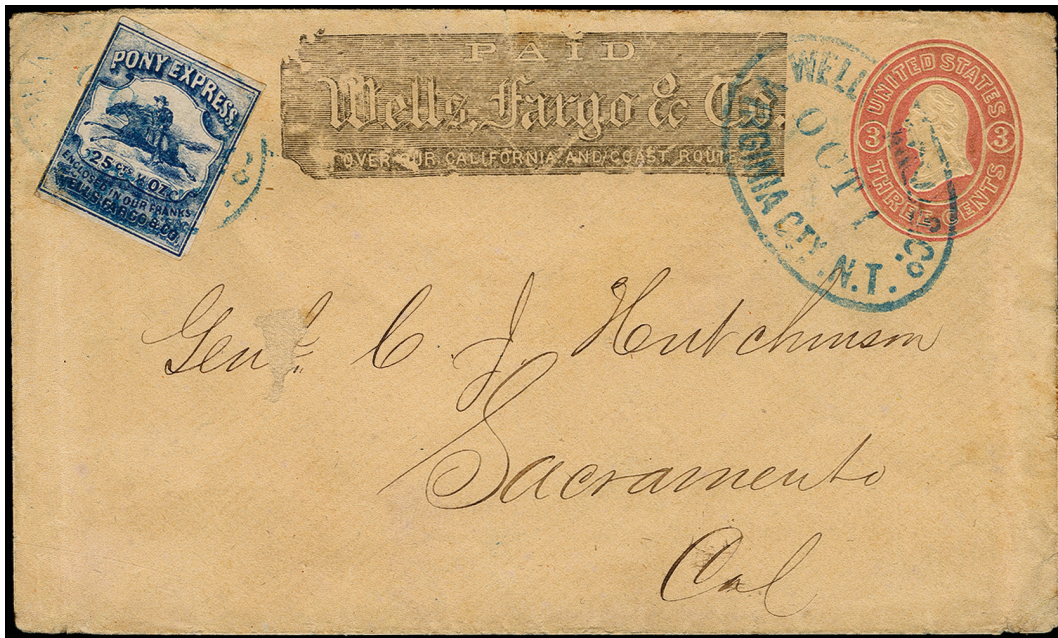 PONY EXPRESS.
25 CTS. ½ OZ.
ENCLOSED IN OUR FRANKS
WELLS, FARGO & CO.
PAID
Wells, Fargo & Co.
OVER OUR CALIFORNIA AND COAST ROUTES
WELLS FARGO & Co
OCT 1
VIRGINIA CTY. N.T.
UNITED STATES
3 3
THREE CENTS
Genl. C J Hutchinson
Sacramento
Cal